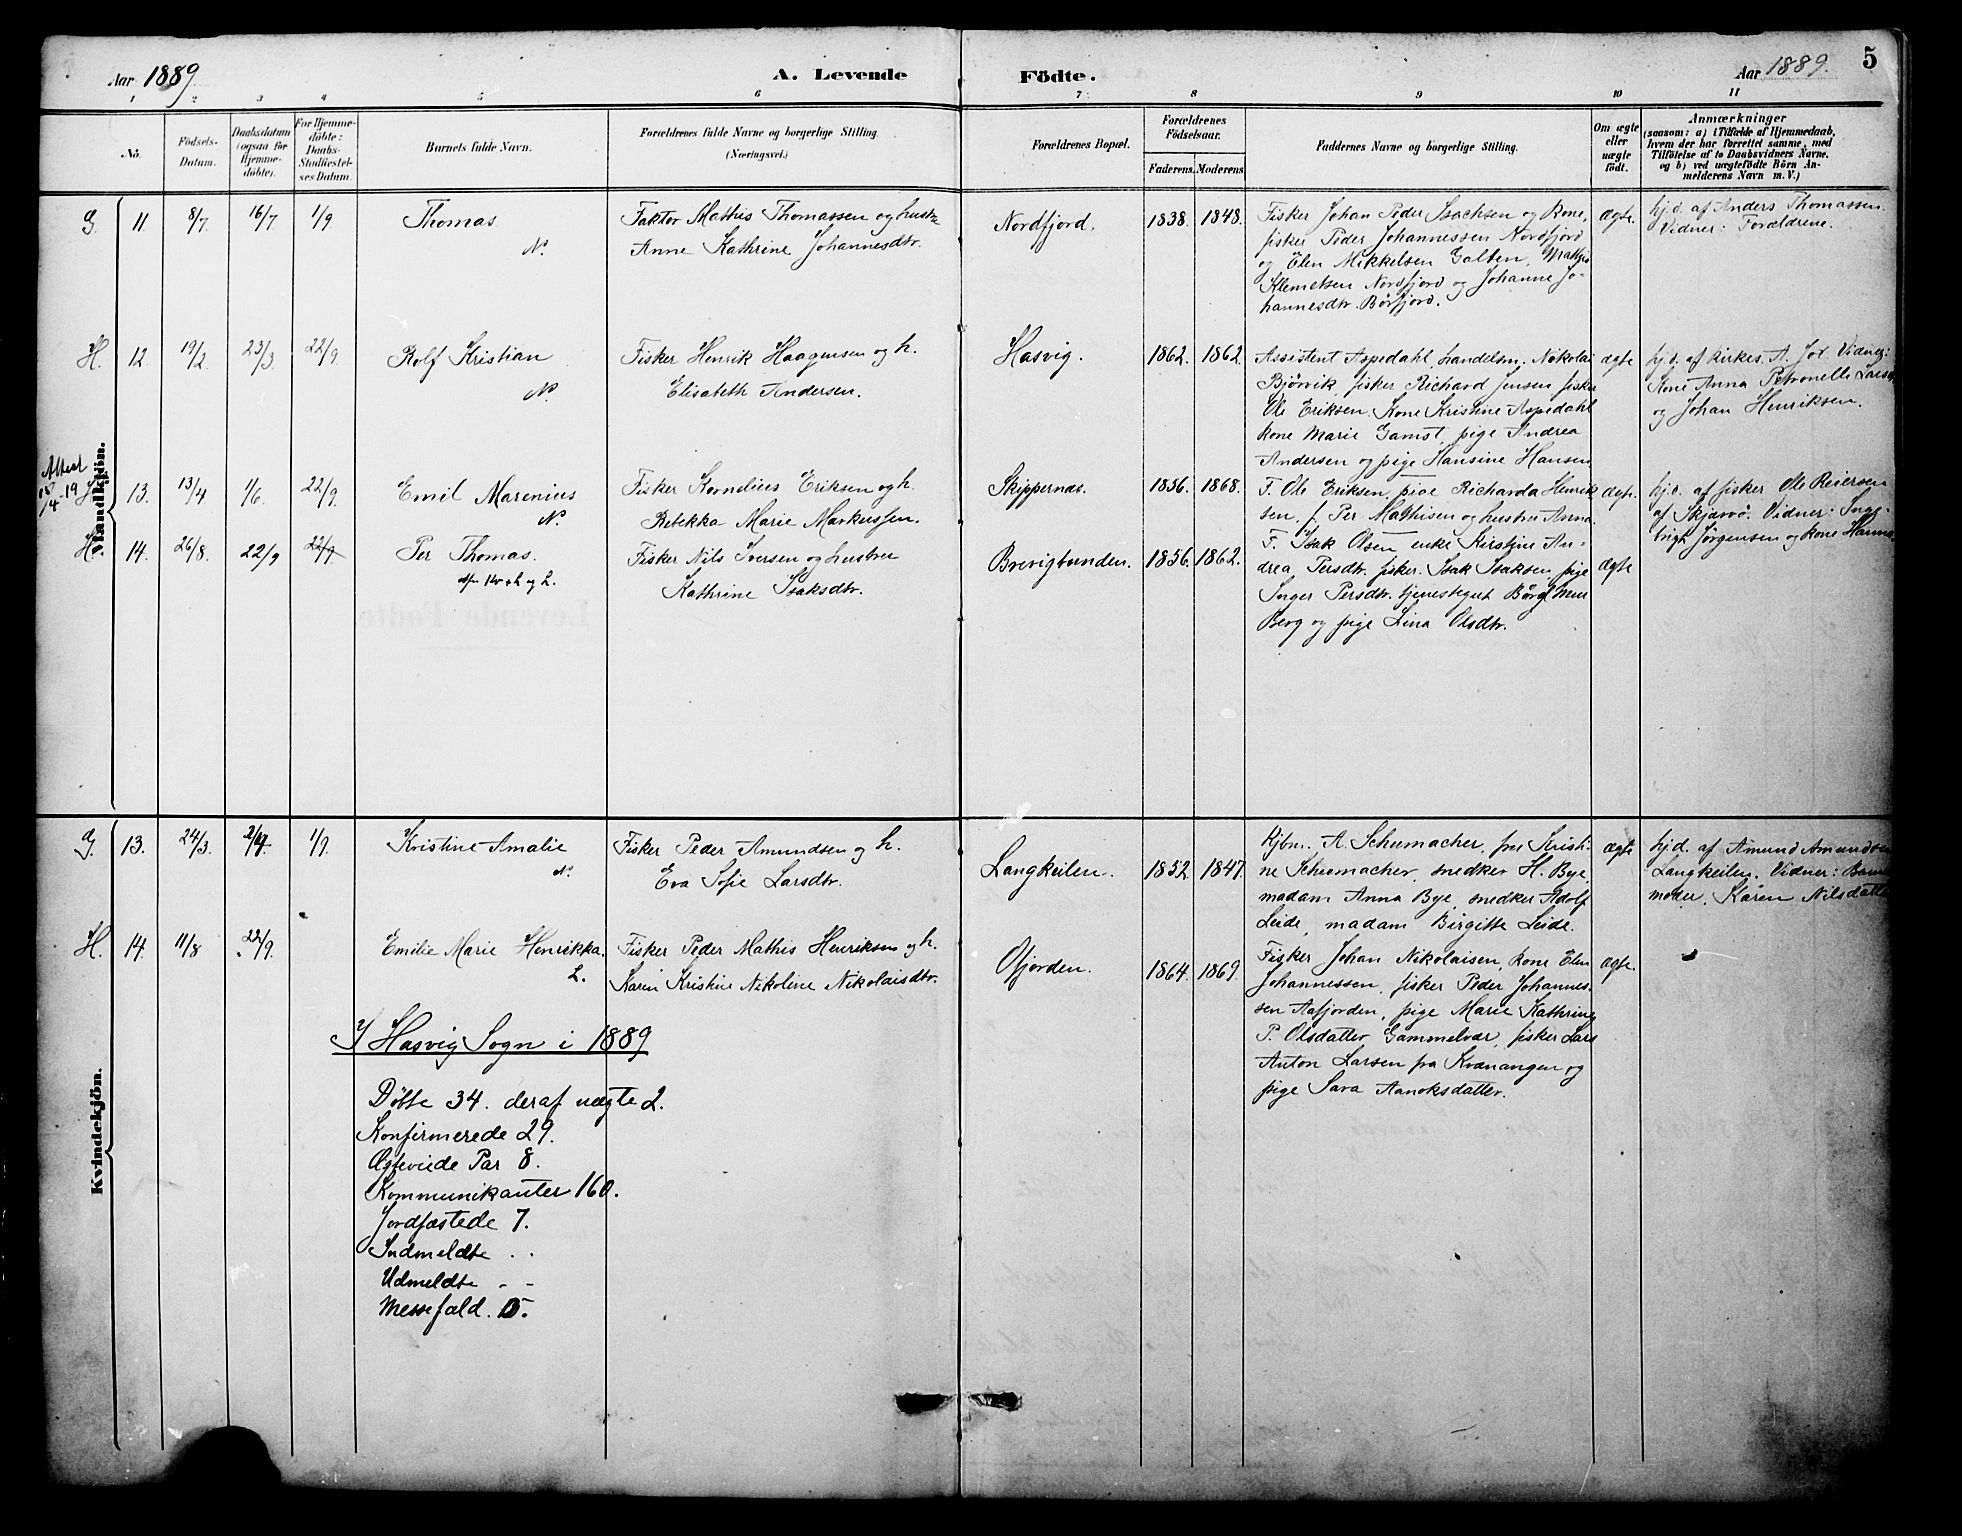 Aar 1889.
A. Levende
Födte.
Aar 1889.
5
1 2 3 4 5 6 7 8 9 10 11
No.
Födsels-
Datum.
Daabsdatum
(ogsaa for
Hjemme-
döbte).
For Hjemme-
döbte:
Daabs-
Stadfæstel-
ses Datum.
Barnets fulde Navn.
Forældrenes fulde Navne og borgerlige Stilling.
(Næringsvei.)
Forældrenes Bopæl.
Forældrenes
Födselsaar.
Faderens. Moderens.
Faddernes Navne og borgerlige Stilling.
Om ægte
eller
uægte
født.
Anmærkninger
(saasom: a) i Tilfælde af Hjemmedaab,
hvem der har forrettet samme, med
Tilföielse af to Daabsvidners Navne,
og b) ved uægtefödte Börn An-
melderens Navn m. V.)
Mandkjön.
G. 11. 8/7. 16/7 1/9. Thomas
N.
Faktor Mathis Thomassen og hustru
Anne Kathrine Johannesdtr.
Nordfjord. 1838. 1848.
Fisker Johan Peder Isachsen og Kone,
fisker Peder Johannessen Nordfjord
og Elen Mikkelsen Galten, Mathis
Klemetsen Nordfjord og Johanne Jo-
hannesdtr. Børfjord.
ægte.
hj.d. af Anders Thomassen.
Vidner: Forældrene.
H. 12. 19/2. 23/3 22/9. Rolf Kristian
N.
Fisker Henrik Haagensen og h.
Elisabeth Andersen.
Hasvig. 1862. 1862
Assistent Aspedahl, handelsm. Nikolai
Bjørvik, fisker Richard Jensen fisker
Ole Eriksen. Kone Kristine Aspedahl
kone Marie Gamst, pige Andrea
Andersen og pige Hansine Hansen
ægte
hj.d. af kirkes. A. Jox. Vidner:
Kone Anna Petronelle Lars
og Johan Henriksen.
Attest
15/4-19
H. 13. 13/4 1/6. 22/9. Emil Marenius
N.
Fisker Kornelius Eriksen og h.
Rebekka Marie Markussen.
Skippernæs. 1856. 1868.
F. Ole Eriksen, pige Richarda Henrik
sen, f. Per Mathisen og hustru Anna.
ægte.
hj.d. af fisker Ole Reiersen
af Skjærvö. Vidner: Inge-
brigt Jørgensen og kone Hanna
H. 14. 26/8. 22/9 22/9. Per Thomas.
Fisker Nils Iversen og hustru
Kathrine Isaksdtr.
Brevigbunden. 1856. 1862.
F. Isak Olsen enke Kirstine An-
drea Persdtr. fisker. Isak Isaksen, pige
Inger Persdtr. tjenestegut Børg
Berg og pige Lina Olsdtr.
ægte
Kvindekjön.
G. 13. 24/3. 1/9. Kristine Amalie
N.
Fisker Peder Amundsen og h.
Eva Sofie Larsdtr.
Langkeilen. 1852. 1847.
Kjbm. A. Schumacher, fru Kristi-
ne Schumacher, snedker H. Bye,
madam Anna Bye, snedker Adolf
Leide, madam Birgitte Leide.
ægte
hj.d. af Amund Amundsen
Langkeilen. Vidner:
moder, Karen Nilsdatter
H. 14. 11/8 22/9. Emilie Marie Henrikka.
L.
Fisker Peder Mathis Henriksen og h.
Karen Kristine Nikoline Nikolaisdtr.
Ofjorden. 1864. 1869.
Fisker Johan Nikolaisen, kone Elen
Johannessen, fisker Peder Johannes-
sen Aafjorden, pige Marie Kathrine
P. Olsdatter Gammelvær, fisker Lars
Anton Larsen fra Kvænangen og
pige Sara Aanoksdatter.
ægte.
I Hasvig Sogn i 1889
Døbte 34. deraf uægte 2.
Konfirmerede 29.
Ægteviede Par 8.
Kommunikanter 160.
Jordfæstede 7.
Indmeldte . .
Udmeldte - -
Messefald. 5.